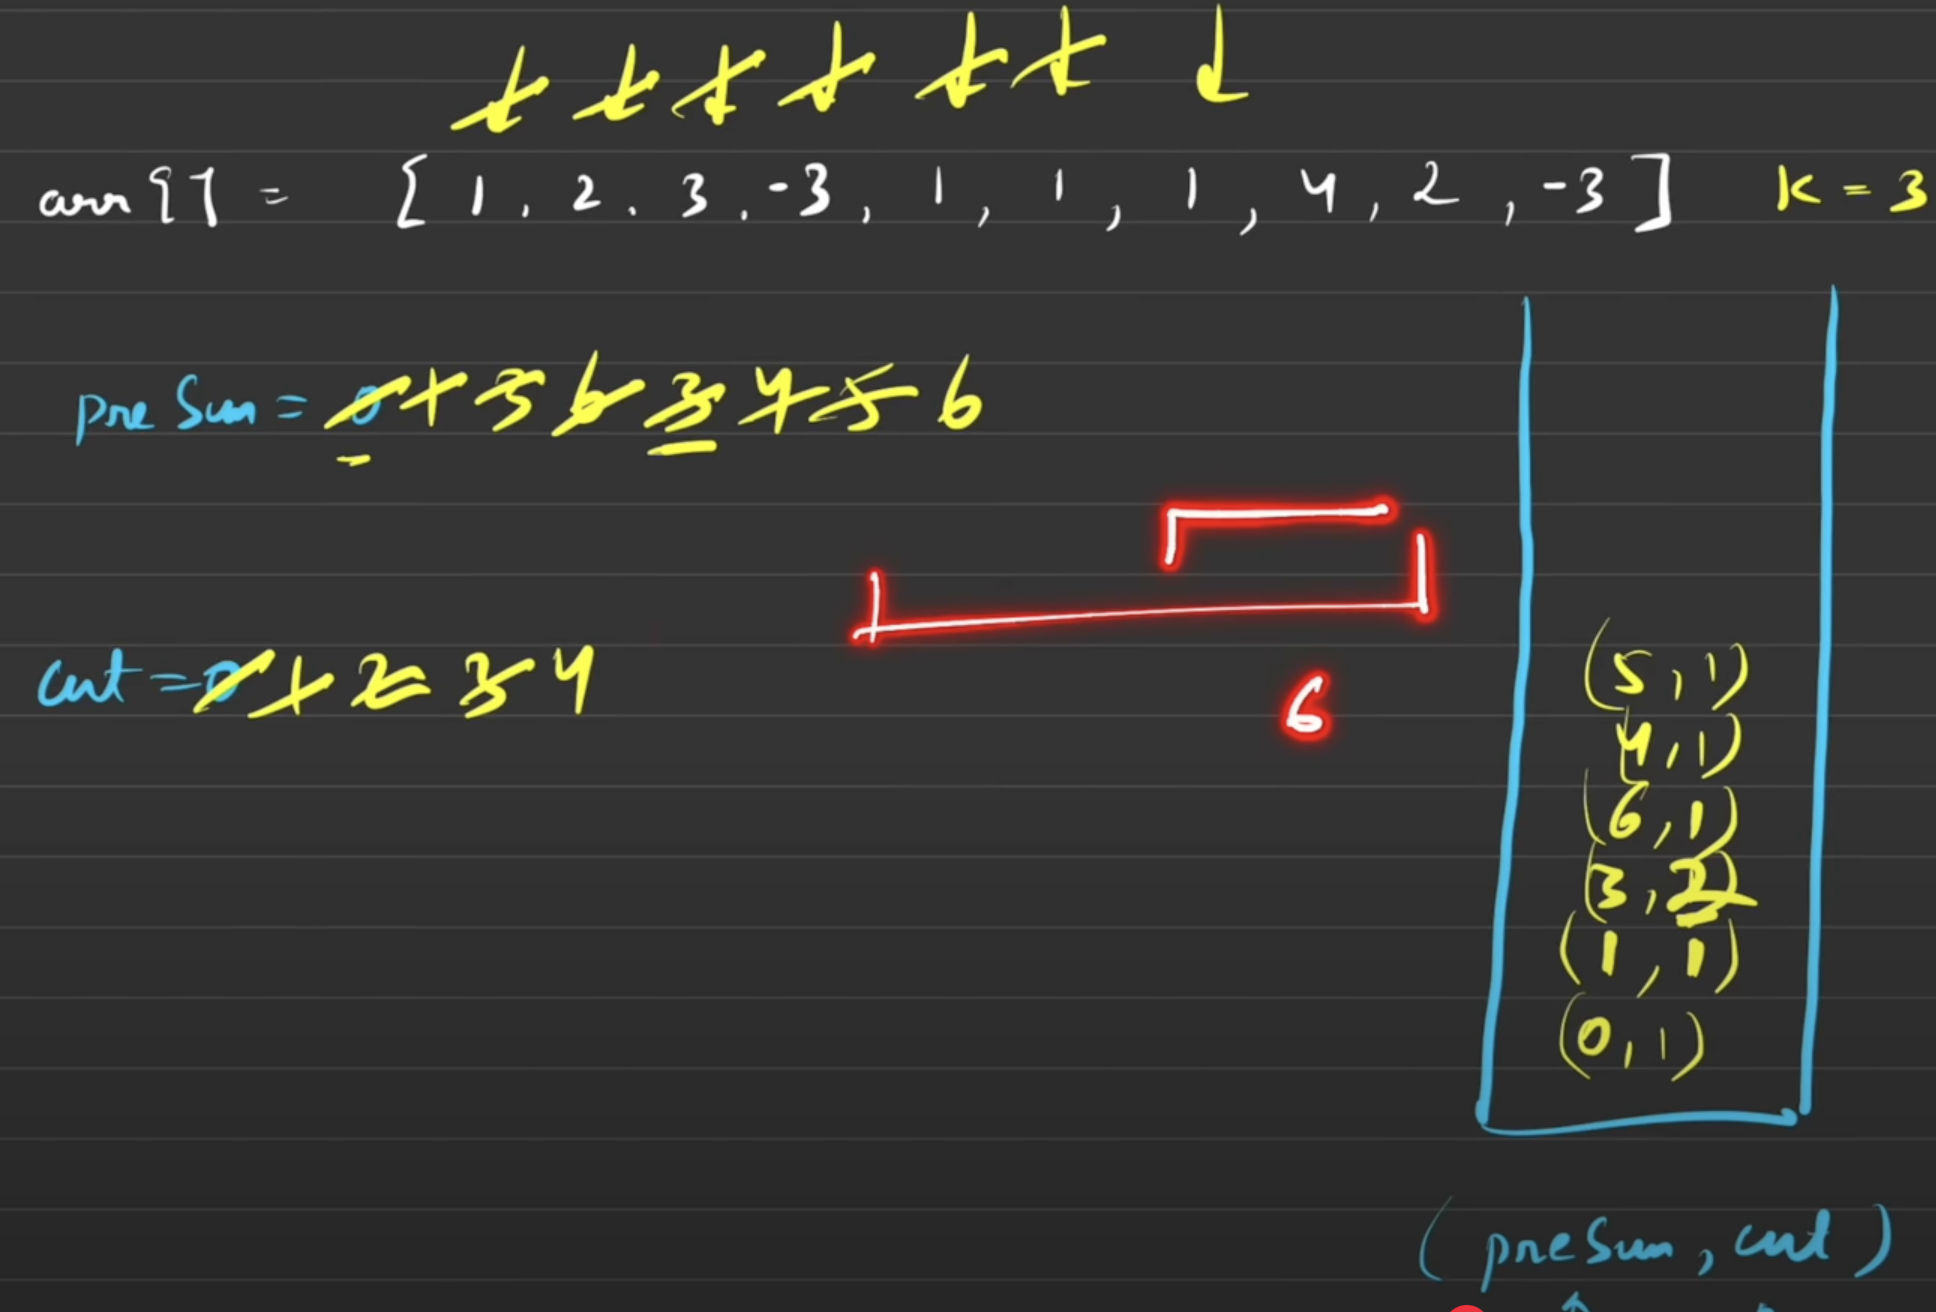 arr[] = [ 1, 2, 3, -3, 1, 1, 1, 4, 2, -3 ] K = 3
preSum = 0 1 3 6 3 4 5 6
cnt = 0 1 2 3 4
6
(5, 1)
(4, 1)
(6, 1)
(3, 2)
(1, 1)
(0, 1)
(preSum, cnt)